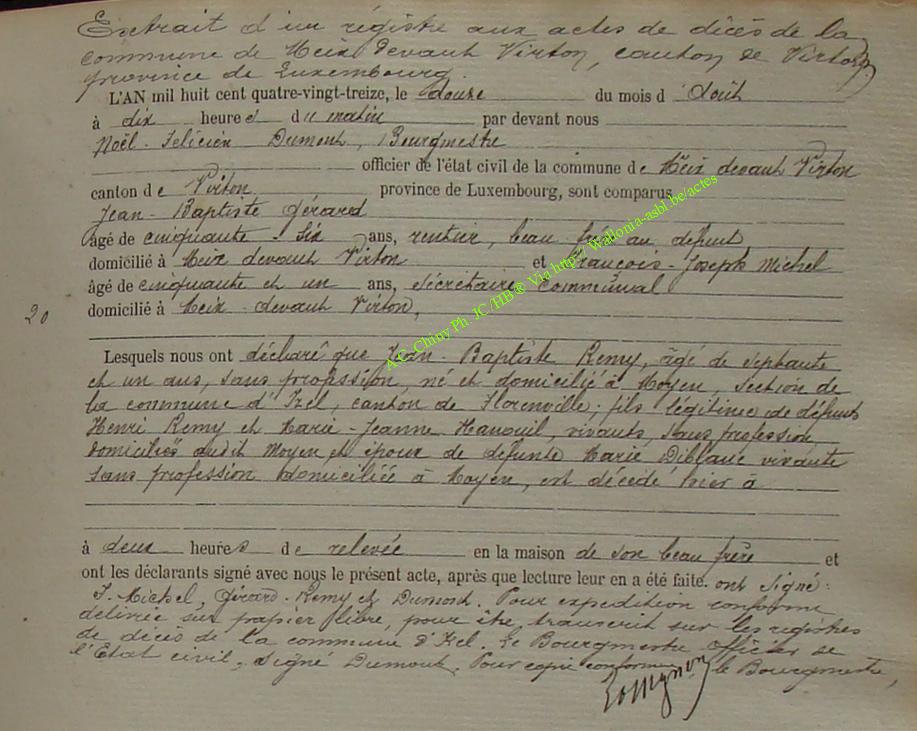 Extrait d'un régistre aux actes de décès de la
commune de Meix devant Virton, canton de Virton,
province de Luxembourg.
L'AN mil huit cent quatre-vingt-treize, le douze du mois d Août
à dix heures du matin par devant nous
Noël-Félicien Dumont, Bourgmestre
officier de l'état civil de la commune de Meix devant Virton
canton de Virton province de Luxembourg, sont comparus
Jean-Baptiste Gérard
âgé de cinquante-six ans, rentier, beau frère au défunt,
domicilié à Meix devant Virton et François-Joseph Michel
âgé de cinquante et un ans, sécrétaire communal
20
domicilié à Meix-devant Virton,
Lesquels nous ont déclaré que Jean-Baptiste Remy, âgé de septante
et un ans, sans profession, né et domicilié à Moyen, section de
la commune d'Izel, canton de Florenville; fils légitime de défunts
Henri Remy et Marie-Jeanne Hanouil, vivants, sans profession,
domiciliés audit Moyen et époux de défunte Marie vivante
sans profession domiciliée à Moyen, est décédé hier à
à deux heures de relevée en la maison de son beau frère et
ont les déclarants signé avec nous le présent acte, après que lecture leur en a été faite. ont signé:
J. Michel, Gérard-Remy et Dumont. Pour expédition conforme
délivrée sur papier libre, pour être transcrit sur les registres
de décès de la commune d'Izel. Le Bourgmestre officier de
l'Etat civil. Signé Dumont. Pour copie conforme le Bourgmestre,
A.C. Chiny Ph. JC/HB® Via http://Wallonia-asbl.be/actes